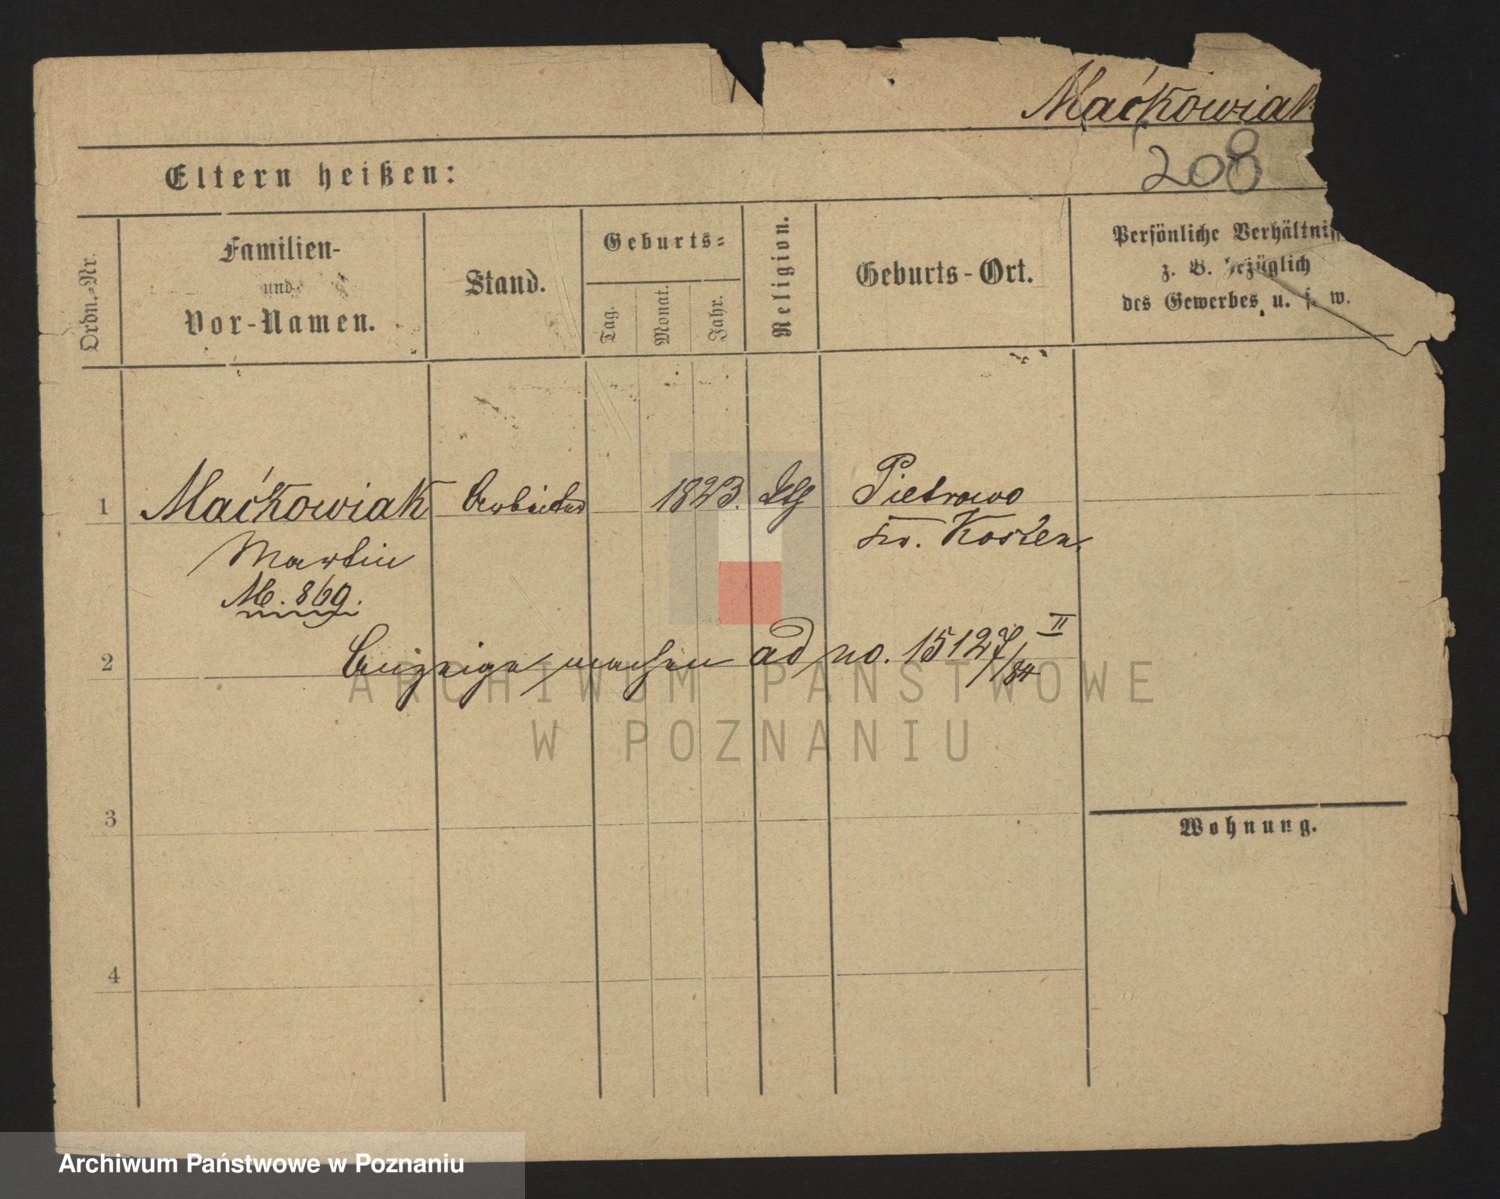 Maćkowiak
208
Eltern heißen:
Ordn.-Nr.
Familien-
und
Vor-Namen.
Stand.
Geburts-
Tag.
Monat.
Jahr.
Religion.
Geburts-Ort.
Persönliche Verhältniss
z. B. bezüglich
des Gewerbes u. s. w.
1 Maćkowiak Arbeiter 1823. Pietrowo
Martin Kr. Kosten
M. 869.
2 Anzeige machen ad no. 15127/84 II
3
4
Wohnung.
ARCHIWUM PAŃSTWOWE
W POZNANIU
Archiwum Państwowe w Poznaniu